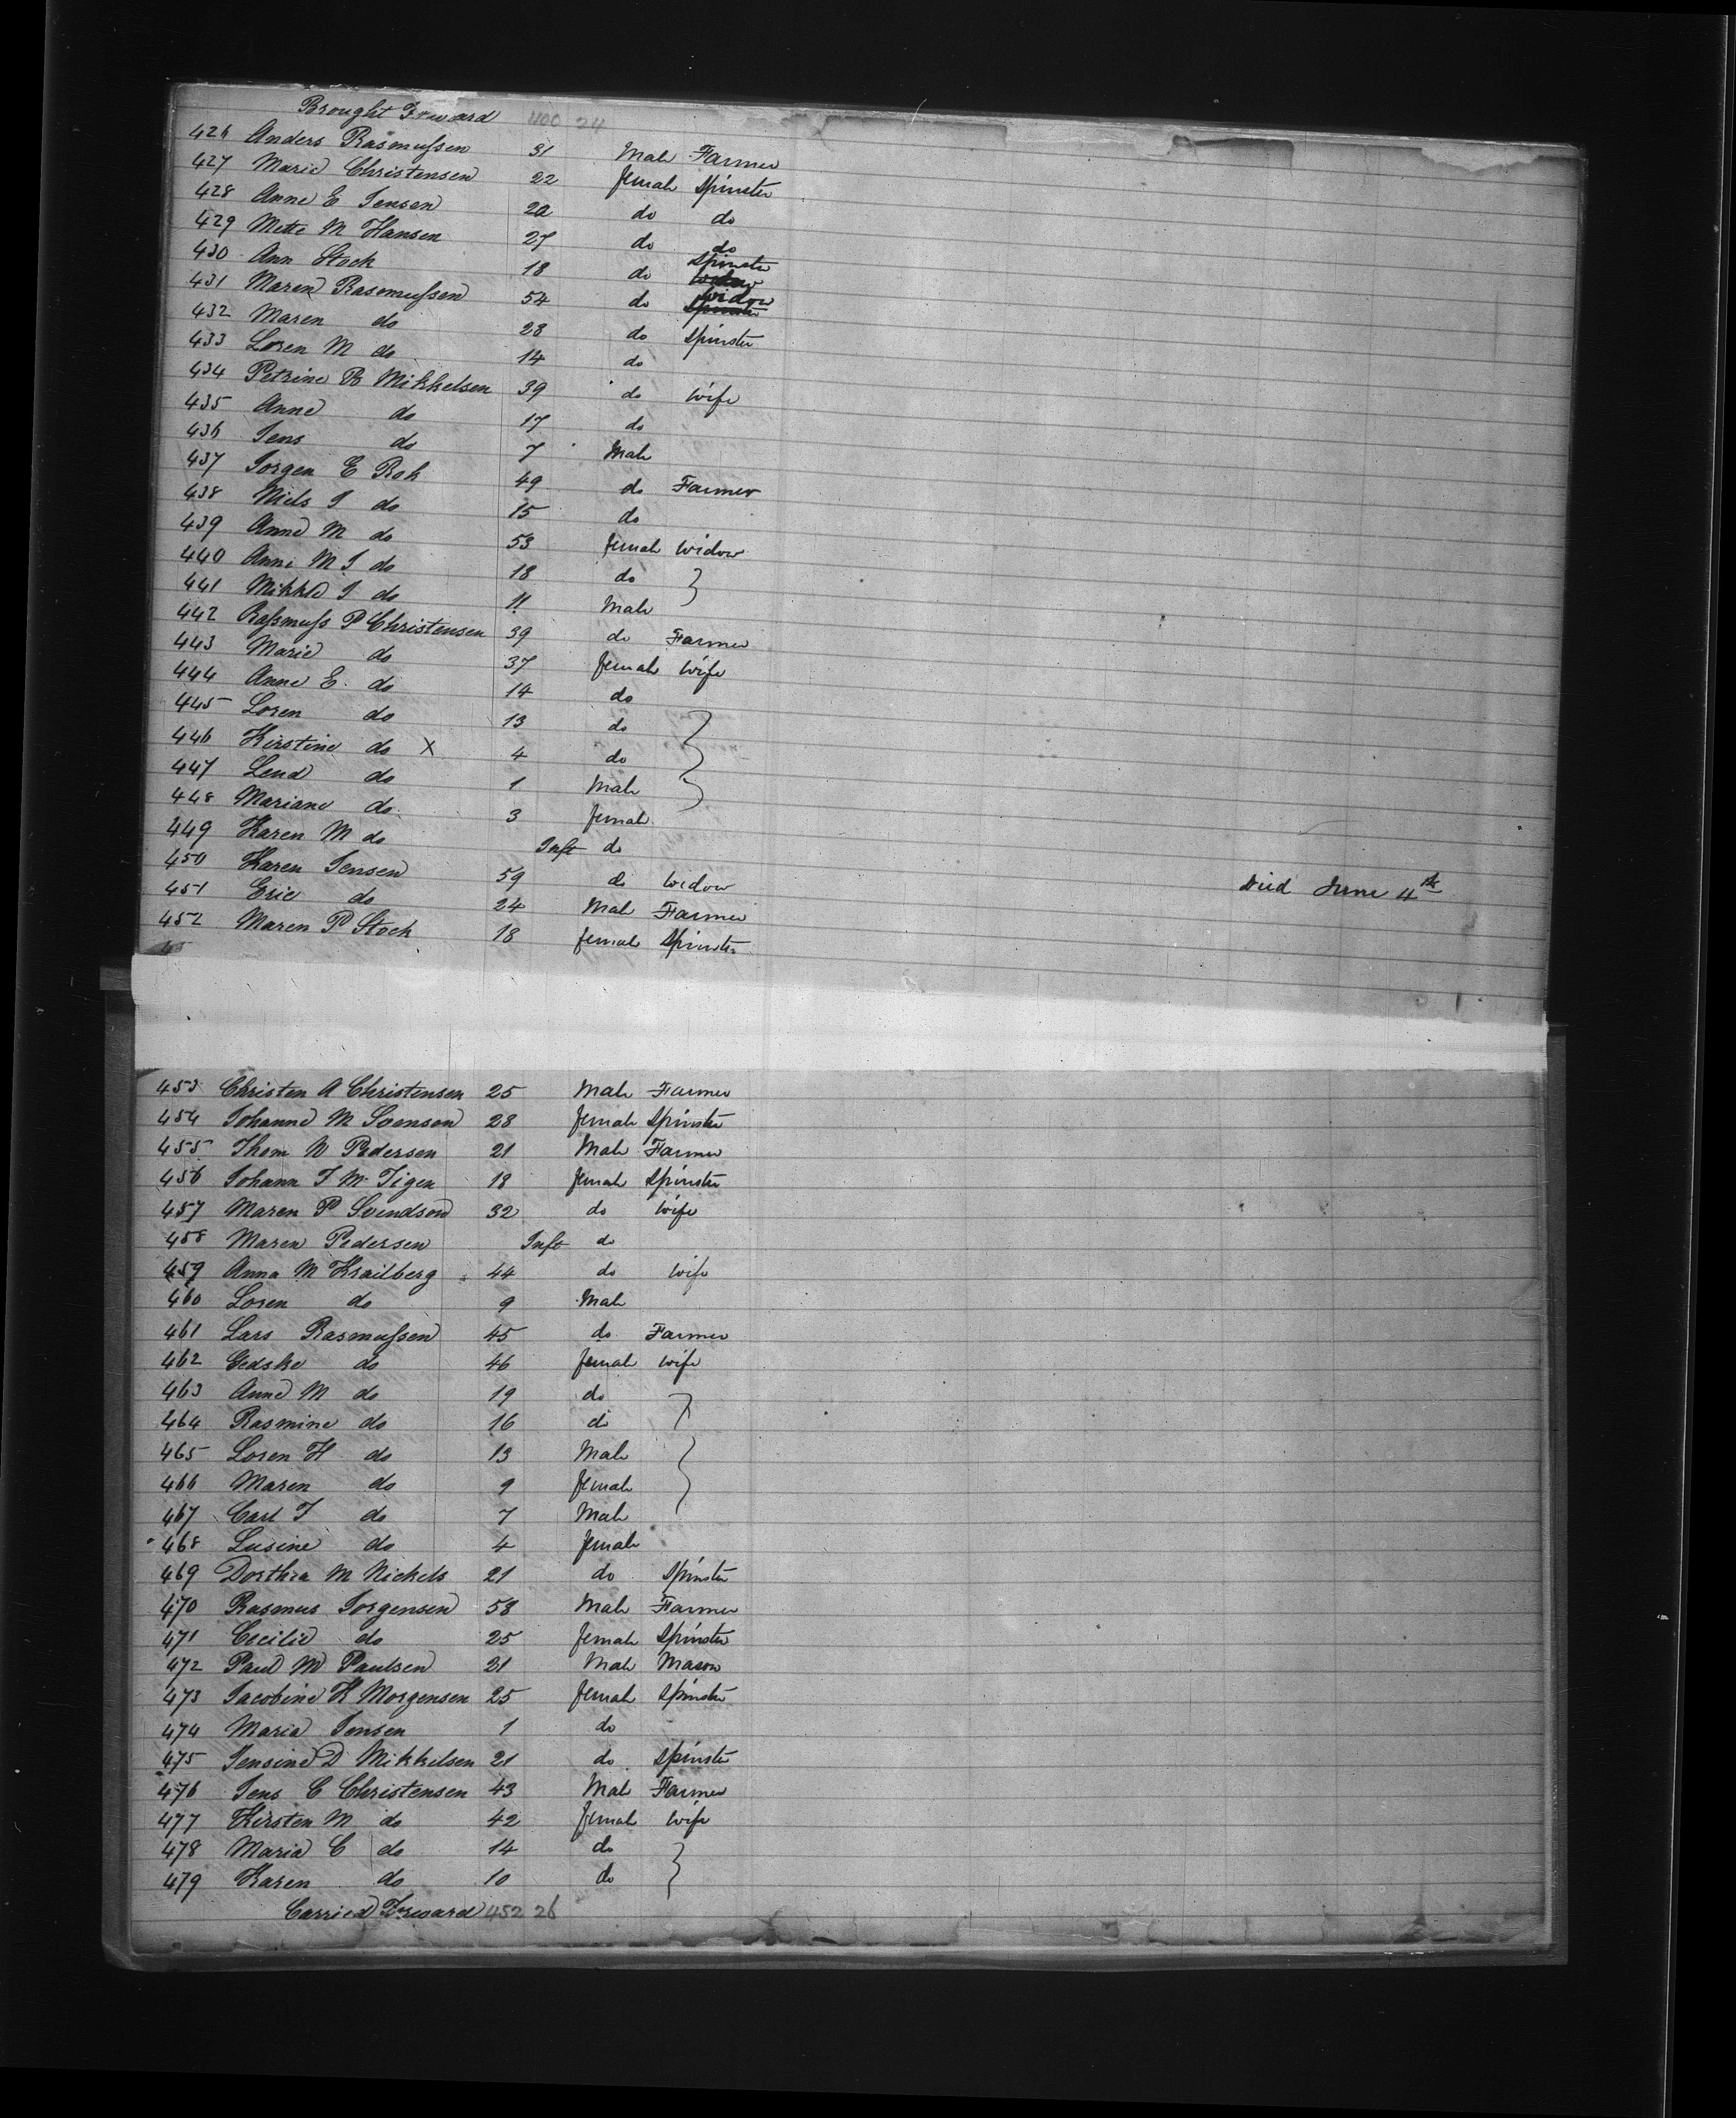 Brought Forward 400 24
426 Anders Rasmussen 31 Male Farmer
427 Marie Christensen 22 female Spinster
428 Anne E Jensen 20 do do
429 Mette M Hansen 27 do do
430 Ann Stock 18 do Spinster
431 Maren Rasmussen 54 do Widow
432 Maren do 28 do Spinster
433 Loren M do 14 do
434 Petrine B Mikkelsen 39 do Wife
435 Anne do 17 do
436 Jens do 7 Male
437 Jorgen E Bak 49 do Farmer
438 Niels J do 15 do
439 Anne M do 53 female Widow
440 Anne M J do 18 do
441 Mikkel J do 11 Male
442 Rassmuss P Christensen 39 do Farmer
443 Marie do 37 female Wife
444 Anne E. do 14 do
445 Loren do 13 do
446 Kirstine do X 4 do
447 Lend do 1 Male
448 Mariane do 3 female
449 Karen M do Inft do
450 Karen Jensen 59 do Widow Died June 4th
451 Eric do 24 Male Farmer
452 Maren P Stock 18 female Spinster
453 Christen A Christensen 25 Male Farmer
454 Johanne M Svenson 28 female Spinster
455 Thom N Pedersen 21 Male Farmer
456 Johann J M Tigen 18 female Spinster
457 Maren P Svendson 32 do Wife
458 Maren Pedersen Inft do
459 Anna M Krailberg 44 do Wife
460 Loren do 9 Male
461 Lars Rasmussen 45 do Farmer
462 Gedske do 46 female Wife
463 Anne M do 19 do
464 Rasmine do 16 do
465 Loren H do 13 Male
466 Maren do 9 female
467 Carl J do 7 Male
468 Lusine do 4 female
469 Dorthea M Nickels 21 do Spinster
470 Rasmus Jorgensen 58 Male Farmer
471 Cecilie do 25 female Spinster
472 Paul M Paulsen 21 Male Mason
473 Jacobine K Morgensen 25 female Spinster
474 Maria Jensen 1 do
475 Jensine D Mikkilsen 21 do Spinster
476 Jens C Christensen 43 Male Farmer
477 Kirsten M do 42 female Wife
478 Maria C do 14 do
479 Karen do 10 do
Carried Forward 452 26